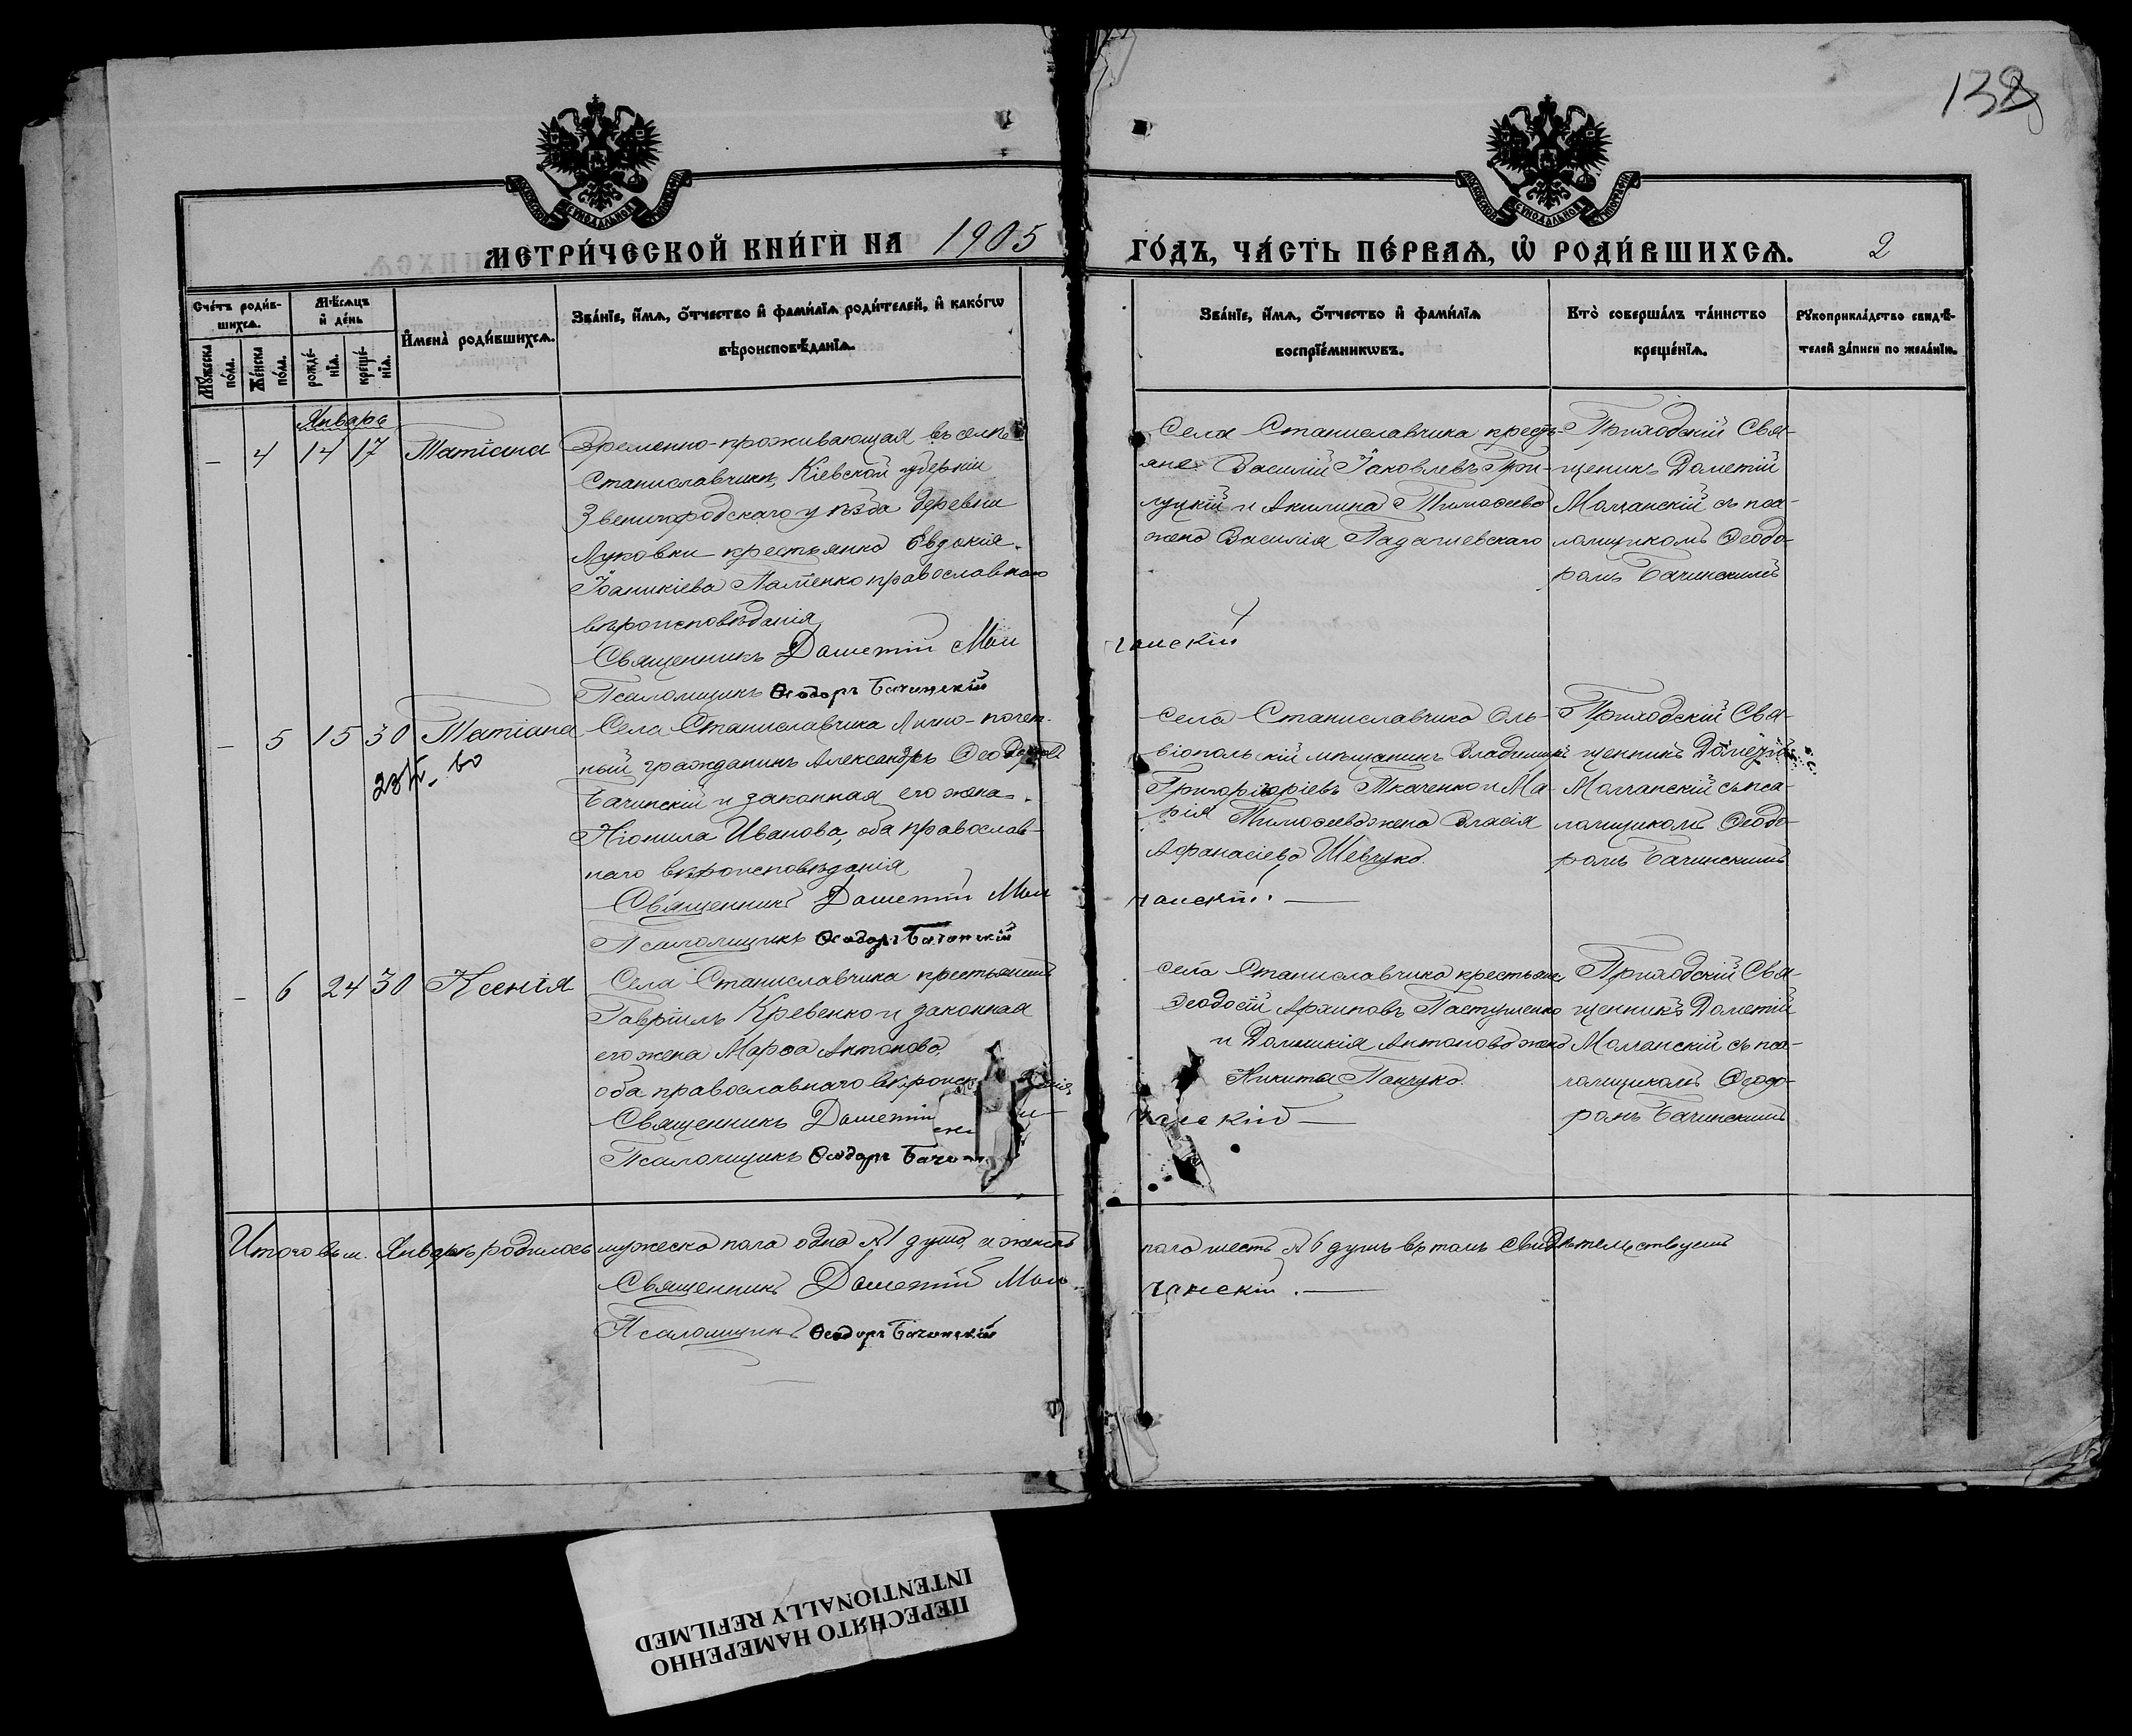 138
МЕТРИ́ЧЕСКОЙ КНИ́ГИ НА 1905
ГО́ДЪ, ЧА́СТЬ ПЕ́РВАѦ, Ѡ҆ РОДИ́ВШИХСѦ.
2
Сче́тъ роди́в-
шихсѧ.
Мѣ́сѧцъ
и҆ де́нь
Мꙋ́жеска
по́ла.
Же́нска
по́ла.
рожде́-
нїѧ.
креще́-
нїѧ.
И҆мена̀ роди́вшихсѧ.
Зва́нїе, и҆́мѧ, ѻ҆́тчество и҆ фами́лїѧ роди́телей, и҆ како́гѡ
вѣроисповѣ́данїѧ.
Зва́нїе, и҆́мѧ, ѻ҆́тчество и҆ фами́лїѧ
воспрїе́мникѡвъ.
Кто̀ соверша́лъ та́инство
креще́нїѧ.
Рꙋкоприкла́дство свидѣ́-
телей за́писи по жела́нїю.
Январь
– 4 14 17 Татіана
Временно-проживающая въ селѣ
Станиславчикѣ, Кіевской губерніи
Звенигородскаго уѣзда деревни
Луковки крестьянка Евдокія
Іоаникіева православнаго
вѣроисповѣданія
Священникъ Дометій Мол
Псаломщикъ Ѳеодоръ Бачинскій
Села Станиславчика кресть-
яне Василій Іаковлевъ При-
луцкій и Акилина Тимоѳеева
жена Василія
чанскій
Приходскій Свя-
щеникъ Дометій
Молчанскій съ пса-
ломщикомъ Ѳеодо-
ромъ Бачинскимъ
– 5 15 30 Татіана
Села Станиславчика Лично-почет-
ный гражданинъ Александръ Ѳеодоровъ
Бачинскій и законная его жена
Неонила Иванова, оба православ-
наго вѣроисповѣданія
Священникъ Дометій Мол
Псаломщикъ Ѳеодоръ Бачинскій
села Станиславчика Оль-
віопольскій мѣщанинъ Владимиръ
Григоріоріевъ Ткаченко и Ма-
рія Тимоѳеева жена Власія
Аѳанасіева Шевчука.
чанскій.
Приходскій Свя-
щенникъ Дометій
Молчанскій съ пса-
ломщикомъ Ѳеодо-
ромъ Бачинскимъ
– 6 24 30 Ксенія
Села Станиславчика крестьянинъ
Гавріилъ Кревенко и законная
его жена Марѳа Антонова,
оба православнаго вѣроисп
Священникъ Дометій
Псаломщикъ Ѳеодоръ Бачин
села Станиславчика крестьяне
Ѳеодосій Архиповъ Пастушенко
и Домникія Антонова жена
Никиты Панчука.
чанскій
Приходскій Свя-
щенникъ Дометій
Молчанскій съ пса-
ломщикомъ Ѳеодо-
ромъ Бачинскимъ
Итого въ м. Январѣ родилось мужеска пола одна №1 душа, а женска
пола шесть №6 душъ въ томъ свидѣтельствуемъ
Священникъ Дометій Мол
чанскій.
Псаломщикъ Ѳеодоръ Бачинскій
ПЕРЕСНЯТО НАМЕРЕННО
INTENTIONALLY REFILMED